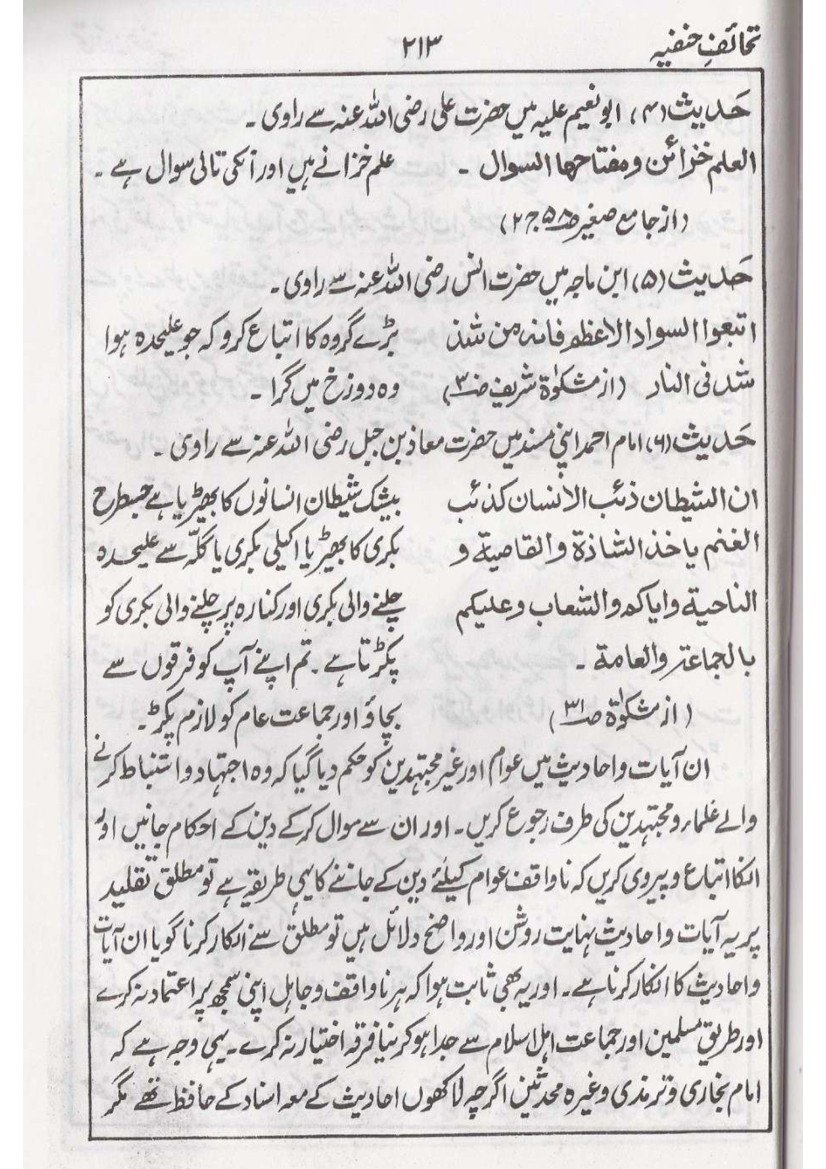 تحائفِ حنفیہ ۲۱۳
حدیث (۴) ابو نعیم علیہ میں حضرت علی رضی اللہ عنہ سے راوی ۔
العلم خزائن ومفتاحها السوال ۔ علم خزانے ہیں اور انکی تالی سوال ہے ۔
(از جامع صغیر صـ۵۸ ج۲)
حدیث (۵) ابن ماجہ میں حضرت انس رضی اللہ عنہ سے راوی ۔
اتبعوا السواد الاعظم فانه من شذ بڑے گروہ کا اتباع کرو کہ جو علیحدہ ہوا
شذ فی النار (از مشکوٰۃ شریف صـ۳۰) وہ دوزخ میں گرا ۔
حدیث (۶) امام احمد اپنی مسند میں حضرت معاذ بن جبل رضی اللہ عنہ سے راوی ۔
ان الشیطان ذئب الانسان کذئب بیشک شیطان انسانوں کا بھیڑیا ہے جسطرح
الغنم یاخذ الشاذة والقاصیة و بکری کا بھیڑیا اکیلی بکری یا گلّہ سے علیحدہ
الناحیة وایاکم والشعاب وعلیکم چلنے والی بکری اور کنارہ پر چلنے والی بکری کو
بالجماعة والعامة ۔ پکڑتا ہے ۔ تم اپنے آپ کو فرقوں سے
(از مشکوٰۃ صـ۳۱) بچاؤ اور جماعت عام کو لازم پکڑ ۔
ان آیات و احادیث میں عوام اور غیر مجتہدین کو حکم دیا گیا کہ وہ اجتہاد و استنباط کرنے
والے علماء و مجتہدین کی طرف رجوع کریں ۔ اور ان سے سوال کر کے دین کے احکام جانیں اور
انکا اتباع و پیروی کریں کہ ناواقف عوام کیلئے دین کے جاننے کا یہی طریقہ ہے تو مطلق تقلید
پر یہ آیات و احادیث نہایت روشن اور واضح دلائل ہیں تو مطلق سے انکار کرنا گویا ان آیات
و احادیث کا انکار کرنا ہے ۔ اور یہ بھی ثابت ہوا کہ ہر ناواقف و جاہل اپنی سمجھ پر اعتماد نہ کرے
اور طریق مسلمین اور جماعت اہل اسلام سے جدا ہو کر نیا فرقہ اختیار نہ کرے ۔ یہی وجہ ہے کہ
امام بخاری و ترمذی وغیرہ محدثین اگرچہ لاکھوں احادیث کے معہ اسناد کے حافظ تھے مگر